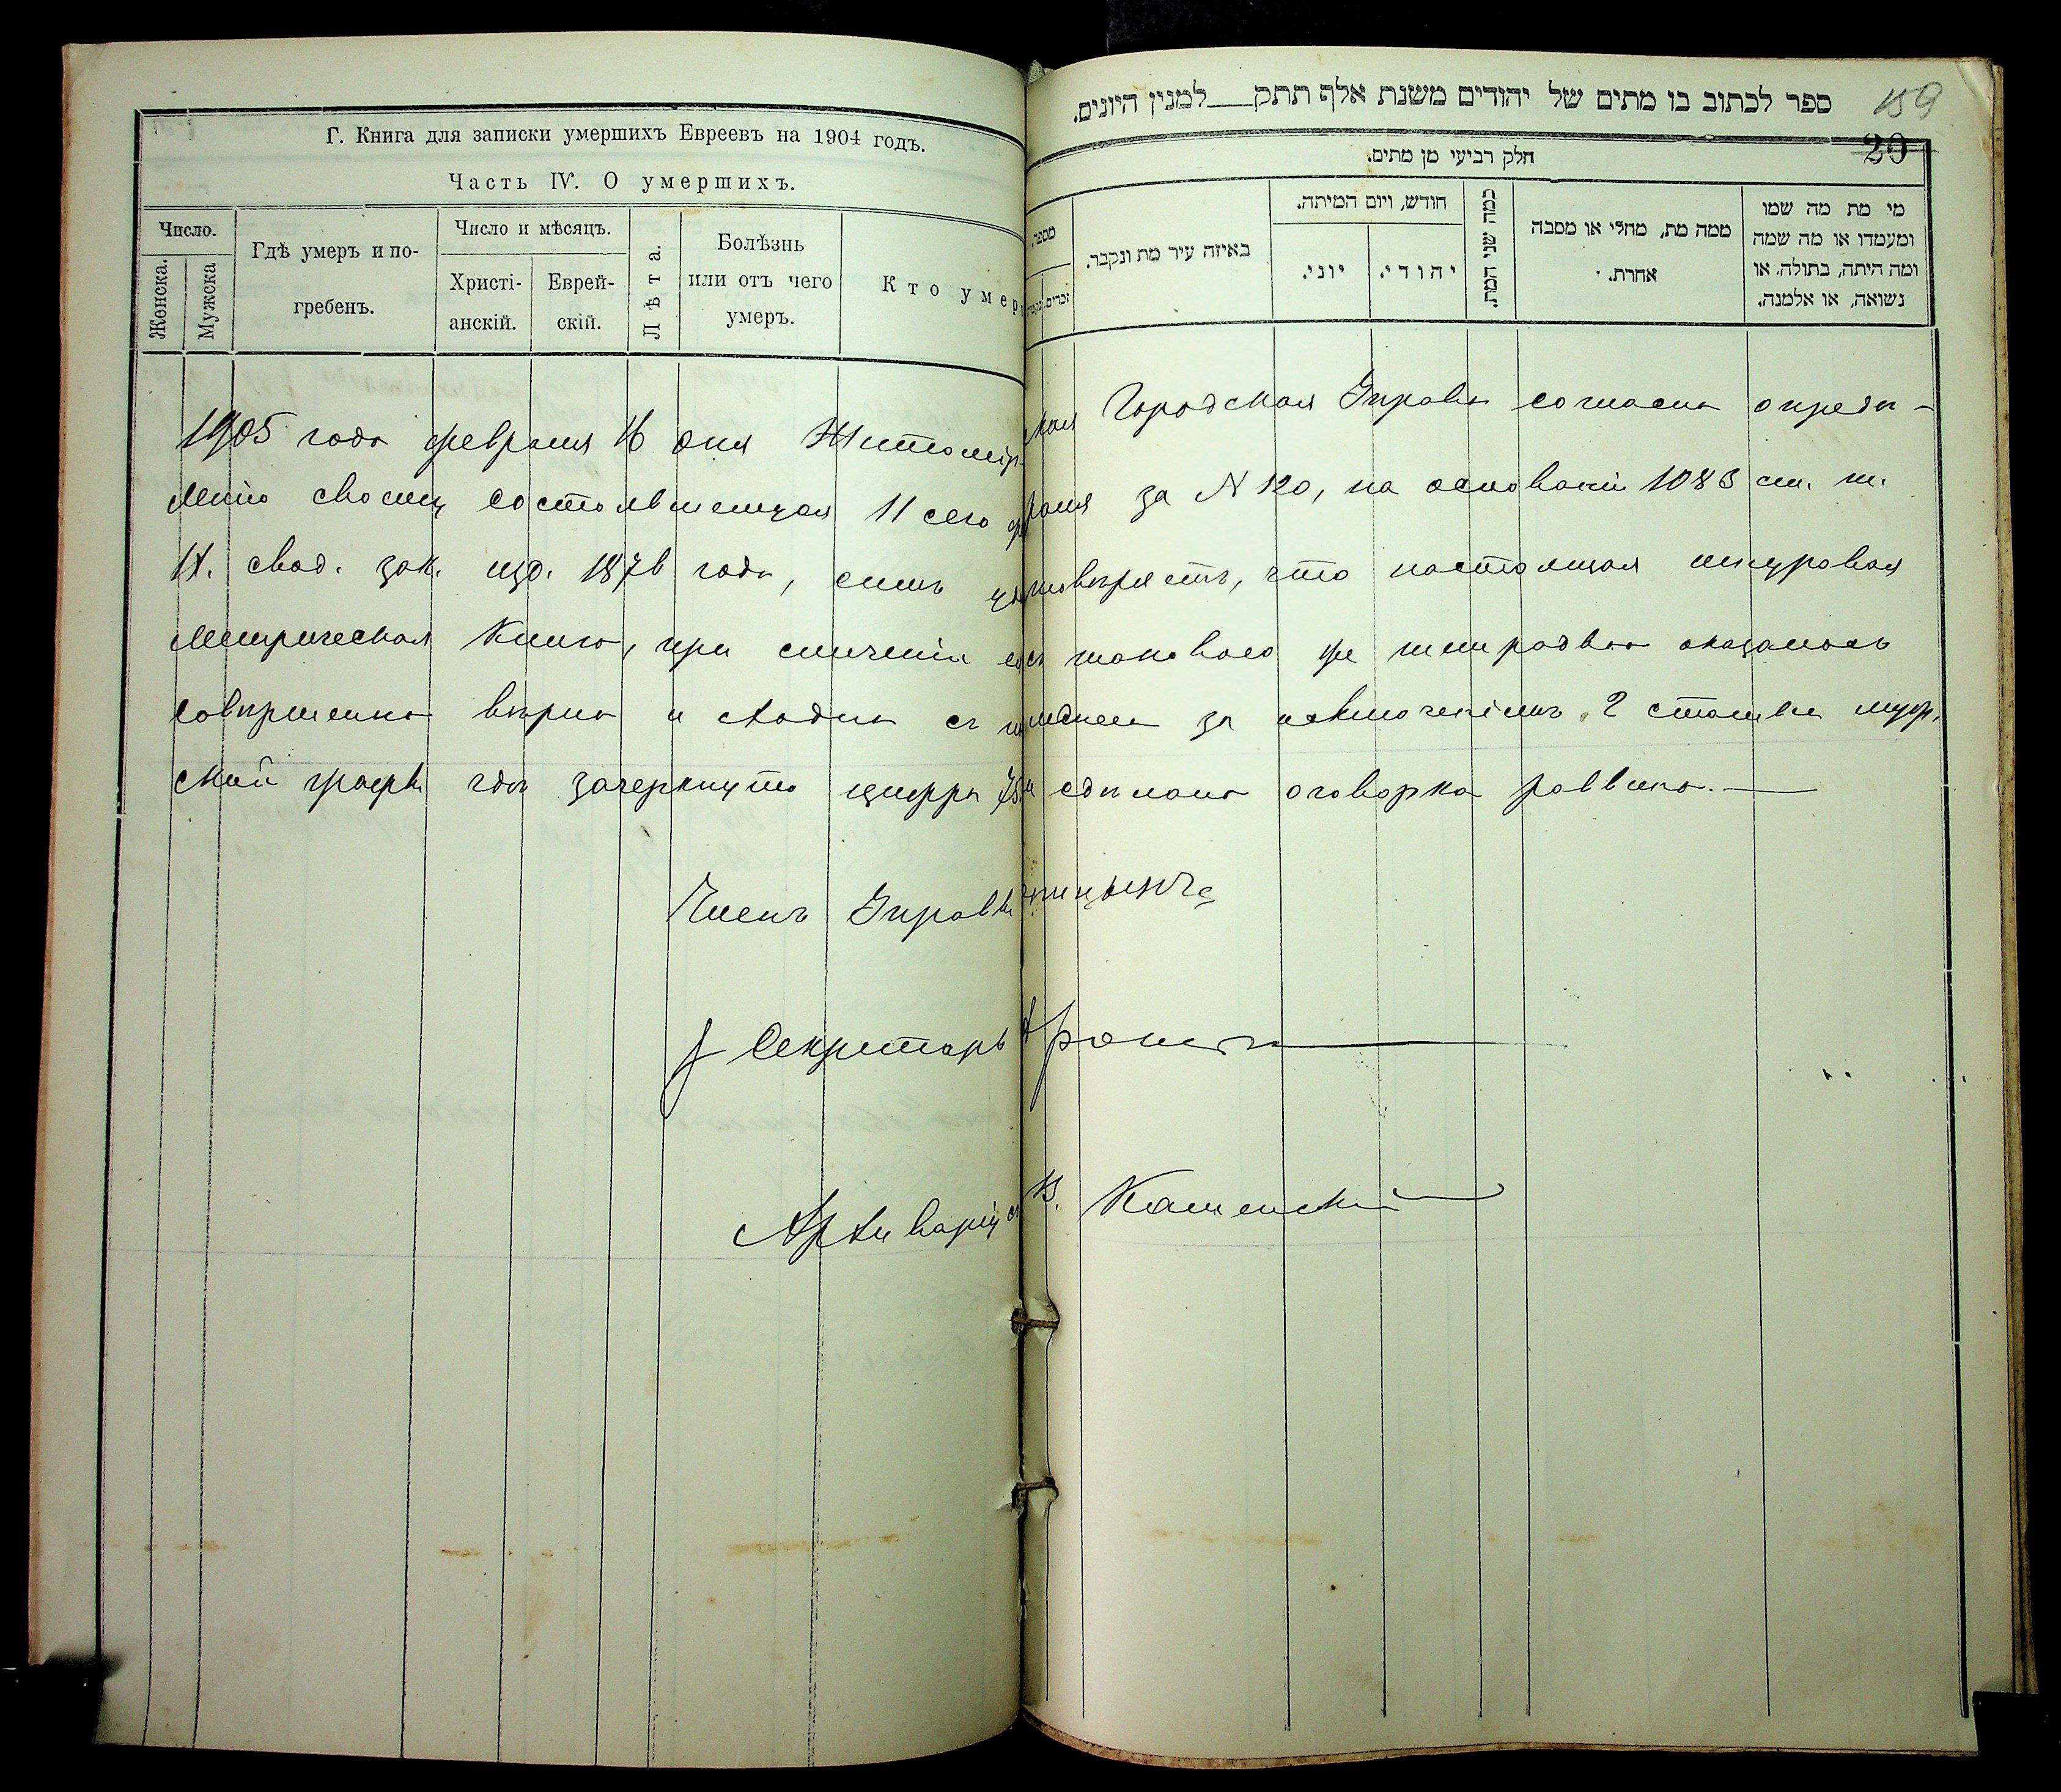 Г. Книга для записки умершихъ Евреевъ на 1904 годъ.
Часть IV. О умершихъ.
Число.
Женска.
Мужска
Гдѣ умеръ и по-
гребенъ.
Число и мѣсяцъ.
Христі-
анскій.
Еврей-
скій.
Лѣта.
Болѣзнь
или отъ чего
умеръ.
Кто умер
159
ספר לכתוב בו מתים של יהודים משנת אלף תתק___למנין היונים.
20
חלק רביעי מן מתים.
מי מת מה שמו
ומעמדו או מה שמה
ומה היתה, בתולה, או
נשואה, או אלמנה.
ממה מת, מחלי או מסבה
אחרת.
כמה שני המת.
חודש, ויום המיתה.
יהודי.
יוני.
באיזה עיר מת ונקבר.
מספר.
זכרים.
1905 года февраля 16 дня Житомірская Городская Управа согласно опредѣ-
ленію своему состоявшемуся 11 сего февраля за № 120, на основаніи 1083 ст. т.
IX. свод. зак. изд. 1876 года, симъ удостовѣряетъ, что настоящая шнуровая
метрическая книга, при сличеніи ея съ таковою же тетрадью оказалась
совершенно вѣрна и сходна съ послѣднею за исключеніемъ 2 статьи муж.
ской графы гдѣ зачеркнуто цифра и сдѣлана оговорка раввина. —
Членъ Управы
Секретарь
Архиваріусъ В. Каменскій